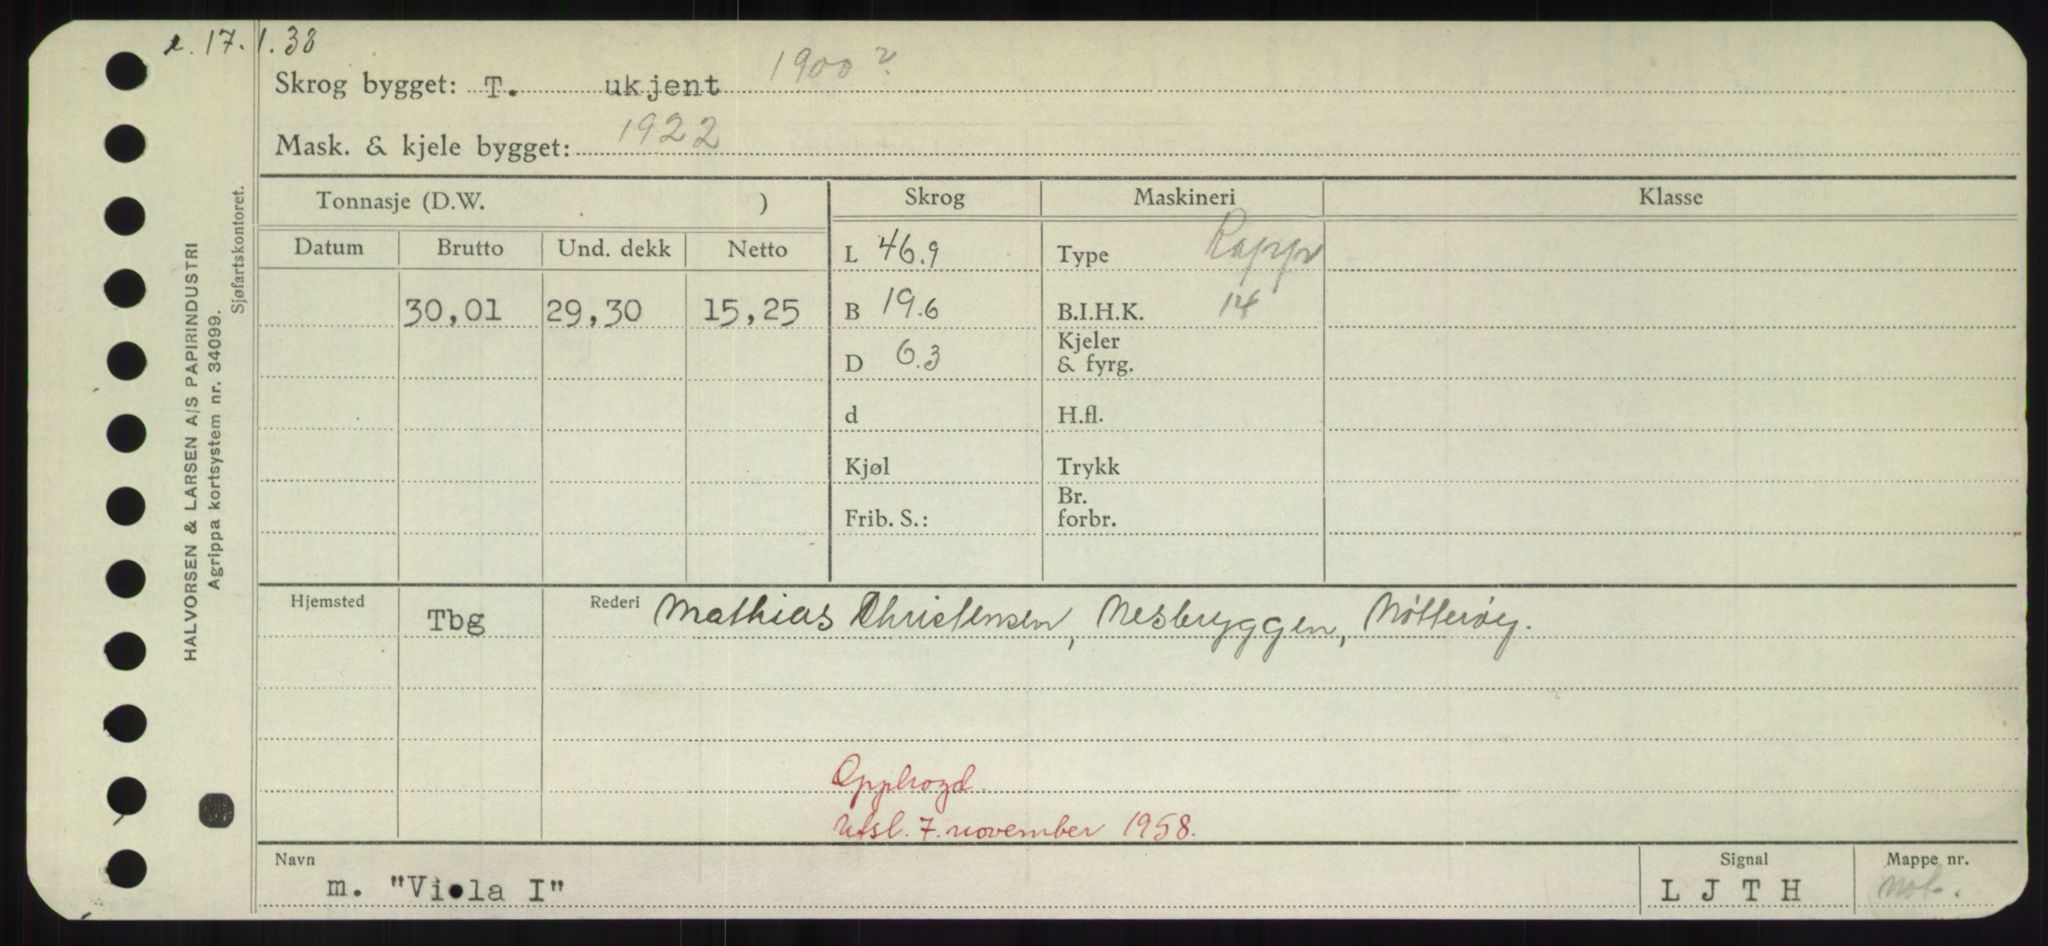 r. 17.1.38
Skrog bygget: T. ukjent 1900?
Mask. & kjele bygget: 1922
HALVORSEN & LARSEN A/S PAPIRINDUSTRI
Agrippa kortsystem nr. 34099.
Sjøfartskontoret.
Tonnasje (D.W. )
Skrog Maskineri Klasse
Datum Brutto Und. dekk Netto
L 46.9 Type Rapp
30,01 29,30 15,25 B 19.6 B.I.H.K. 14
D 6.3 Kjeler & fyrg.
d H.fl.
Kjøl Trykk
Frib. S.: Br. forbr.
Hjemsted Tbg Rederi Mathias Christensen, Nesbryggen, Nötteröy.
Opphogd
Utsl. 7. november 1958.
Navn Signal Mappe nr.
m. "Viola I" L J T H Not.